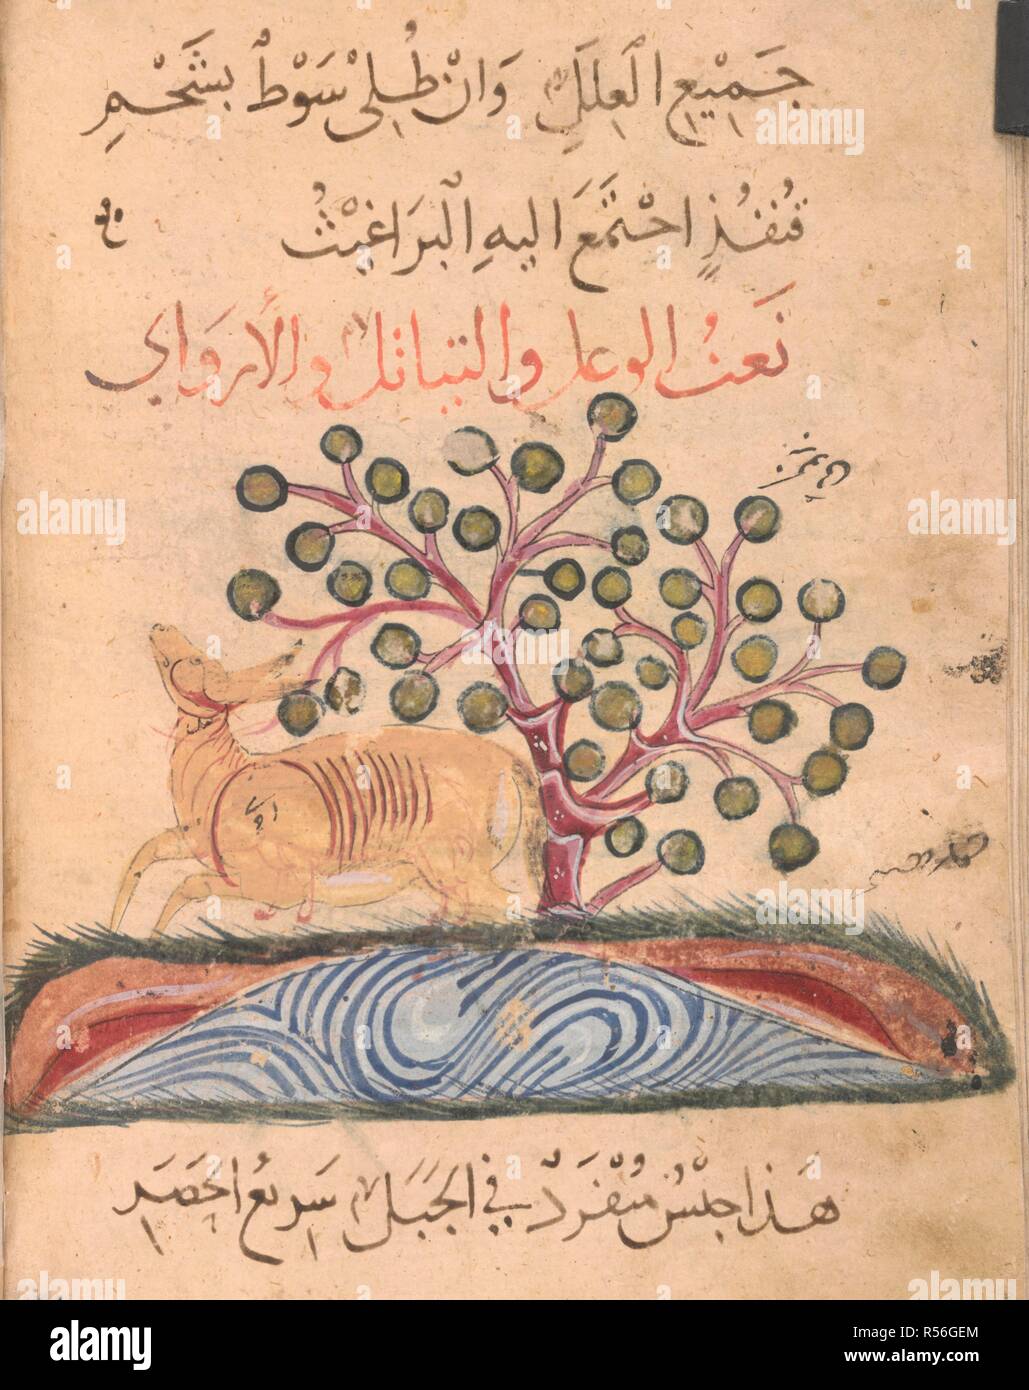 جَمِيْعِ العِلَلِ وَانْ طُلِىَ سَوْطْ بشَحْمِ
قنفُذٍ اجْتَمَعَ اليهِ البَرَاغيْثُ
نَعتُ الوعل والتياتل والأرواي
هَذا جنْسٌ منْفَردٌ في الجَبَلِ سَرِيعُ الحَصَرِ
alamy
Image ID: R56GEM
www.alamy.com